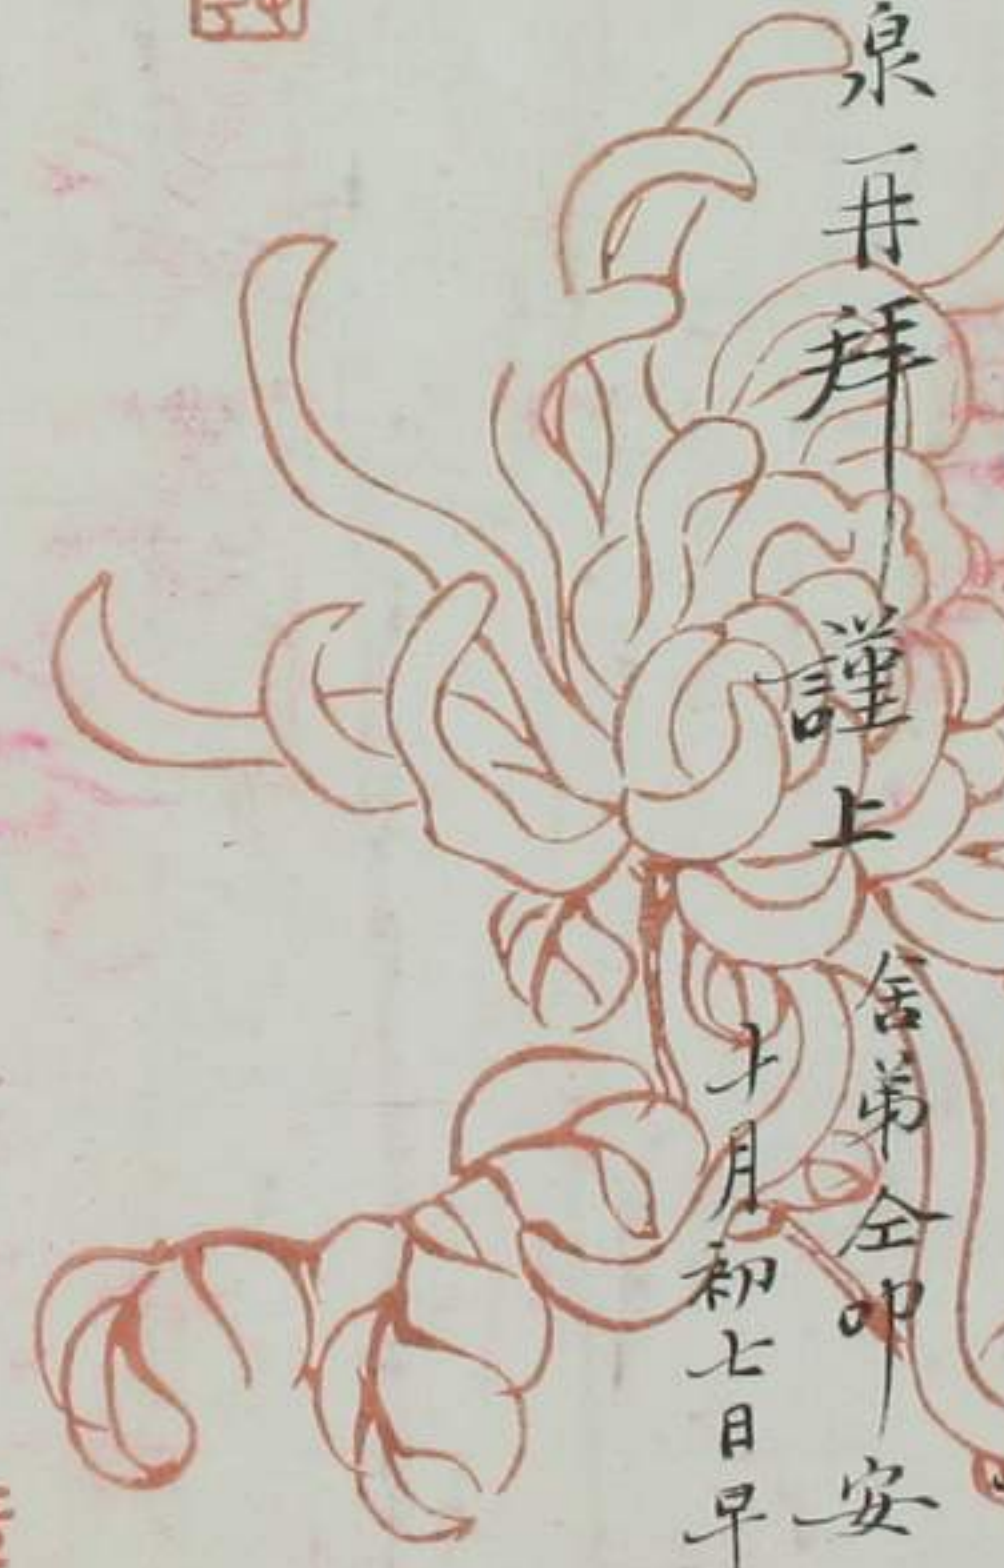 泉再拜謹上
舍弟仝叩安
十月初七日早